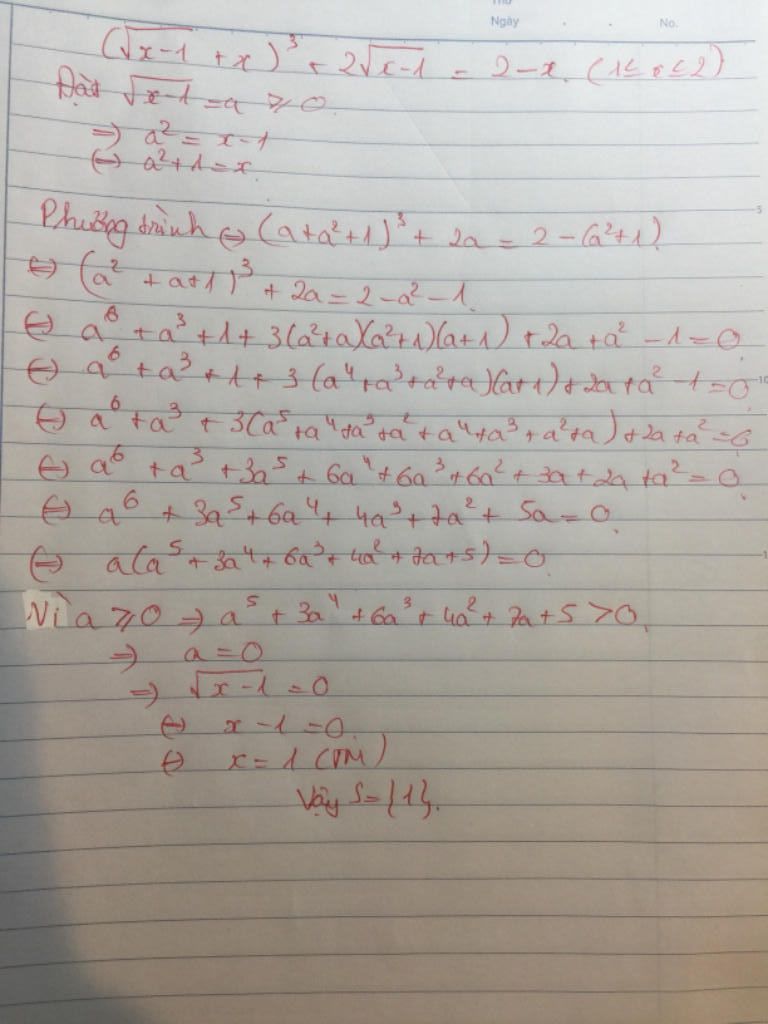 Thứ
Ngày . . No.
(√(x-1) + x)³ + 2√(x-1) = 2-x. (1≤x≤2)
Đặt √(x-1) = a ≥ 0
=> a² = x-1
<=> a²+1 = x.
Phương trình <=> (a+a²+1)³ + 2a = 2-(a²+1)
<=> (a² + a+1)³ + 2a = 2-a²-1.
<=> a⁶ + a³ + 1 + 3(a²+a)(a²+1)(a+1) + 2a + a² - 1 = 0
<=> a⁶ + a³ + 1 + 3(a⁴+a³+a²+a)(a+1) + 2a + a² - 1 = 0
10
<=> a⁶ + a³ + 3(a⁵ + a⁴ + a³ + a² + a⁴ + a³ + a² + a) + 2a + a² = 0
<=> a⁶ + a³ + 3a⁵ + 6a⁴ + 6a³ + 6a² + 3a + 2a + a² = 0
<=> a⁶ + 3a⁵ + 6a⁴ + 7a³ + 7a² + 5a = 0
<=> a(a⁵ + 3a⁴ + 6a³ + 7a² + 7a + 5) = 0
Vì a ≥ 0 => a⁵ + 3a⁴ + 6a³ + 7a² + 7a + 5 > 0
=> a = 0
=> √(x-1) = 0
<=> x - 1 = 0
<=> x = 1 (TM)
Vậy S = {1}.